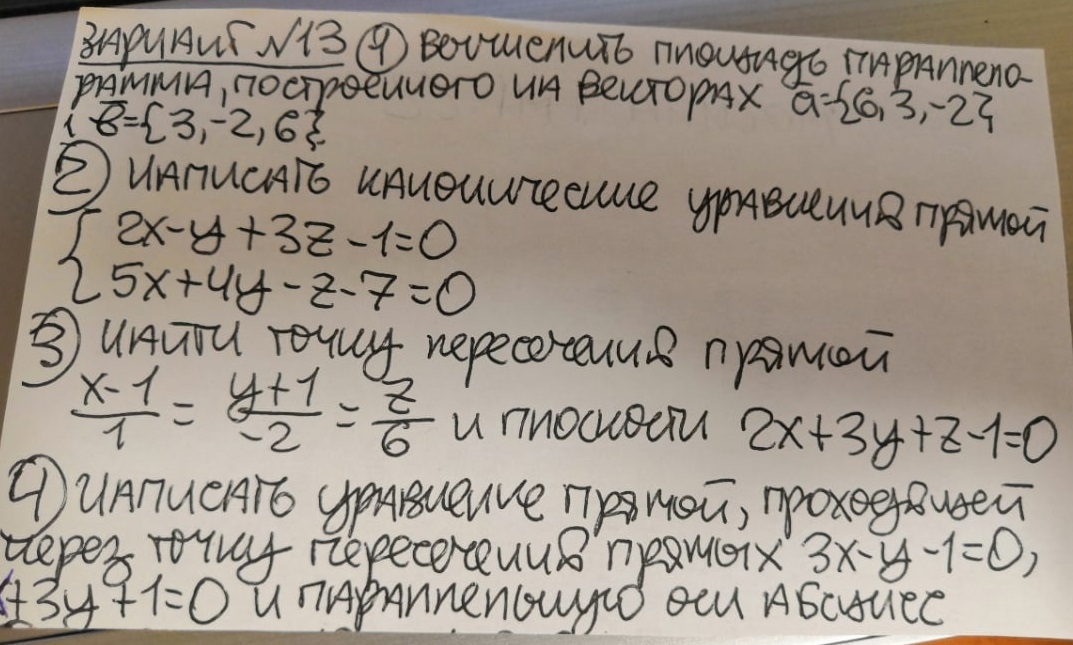 ВАРИАНТ №13 ① ВЫЧИСЛИТЬ ПЛОЩАДЬ ПАРАЛЛЕЛО-
ГРАММА, ПОСТРОЕННОГО НА ВЕКТОРАХ a̅={6,3,-2}
b̅={3,-2,6}
② НАПИСАТЬ КАНОНИЧЕСКИЕ УРАВНЕНИЯ ПРЯМОЙ
2x-y+3z-1=0
5x+4y-z-7=0
③ НАЙТИ ТОЧКУ пересечения прямой
(x-1)/1 = (y+1)/-2 = z/6 и плоскости 2x+3y+z-1=0
④ НАПИСАТЬ УРАВНЕНИЕ ПРЯМОЙ, ПРОХОДЯЩЕЙ
через точку пересечения прямых 3x-y-1=0,
+3y+1=0 и ПАРАЛЛЕЛЬНУЮ оси АБСЦИСС